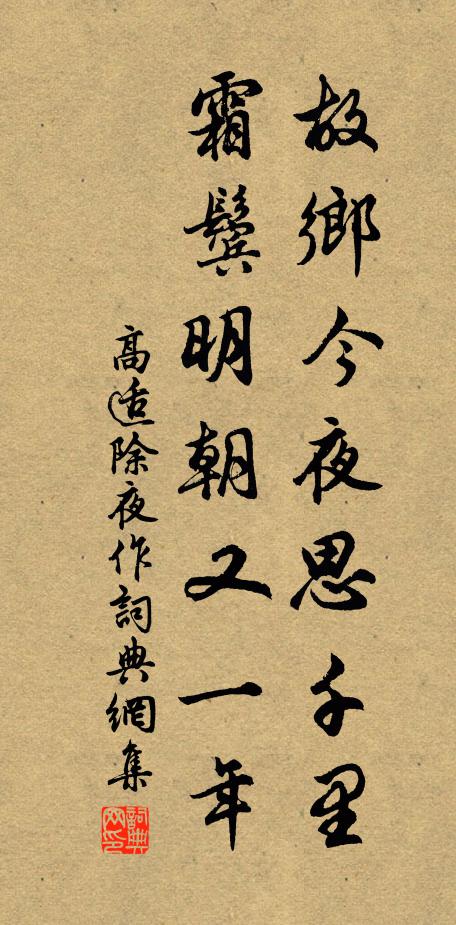 故鄉今夜思千里
霜鬢明朝又一年
高适除夜作詞典網集
詞典网印